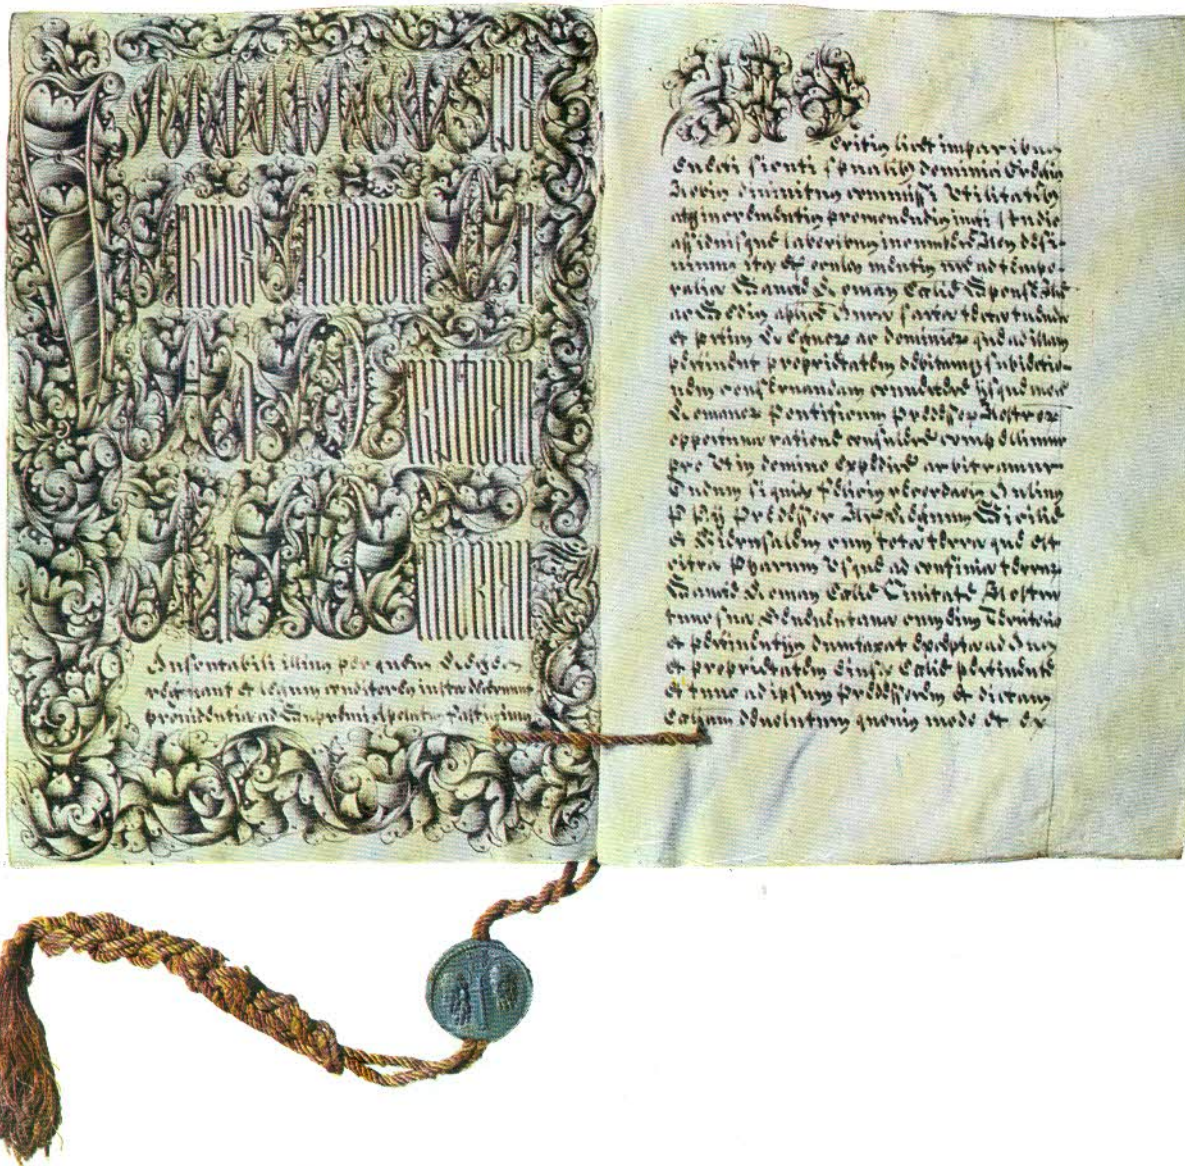 Inscrutabili illius per quem Reges
regnant et legum conditores iusta decernunt
providentia ad Supremi Aplatus fastigium
meritis licet imparibus
evecti sicuti spualibus dominici Gregis
Nobis divinitus commissi Utilitatibus
atq incrementis promovendis iugi studio
assiduisque laboribus incumbere Non desi-
nimus ita et oculos mentis nre ad tempo-
ralia Sancte Romane Ecclie Sponse Nre
ac Sedis aplice Iura sarta tecta tuenda
et Regnor ac dominior que ad illam
pertinent proprietatem debitamq subiectio-
nem conservandam convertere iisque more
Romanor Pontificum Predecessor Nostror
opportuna ratione consulere compellimur
pro Ut in domino expedire arbitramur
Dudum siquidem felicis recordacis Iulius
P P iij Predecessor Nr Regnum Sicilie
et Hierusalem cum tota terra que est
citra Pharum Usque ad confinia terrar
Sancte Romane Ecclie Civitate Nostra
tunc sua Beneventana cum eius Territorio
et pertinentijs dumtaxat excepta ad Ius
et proprietatem Eiusde Ecclie pertinente
et tunc ad ipsum Predecessorem et dictam
Eccliam devolutum quovis modo et ex